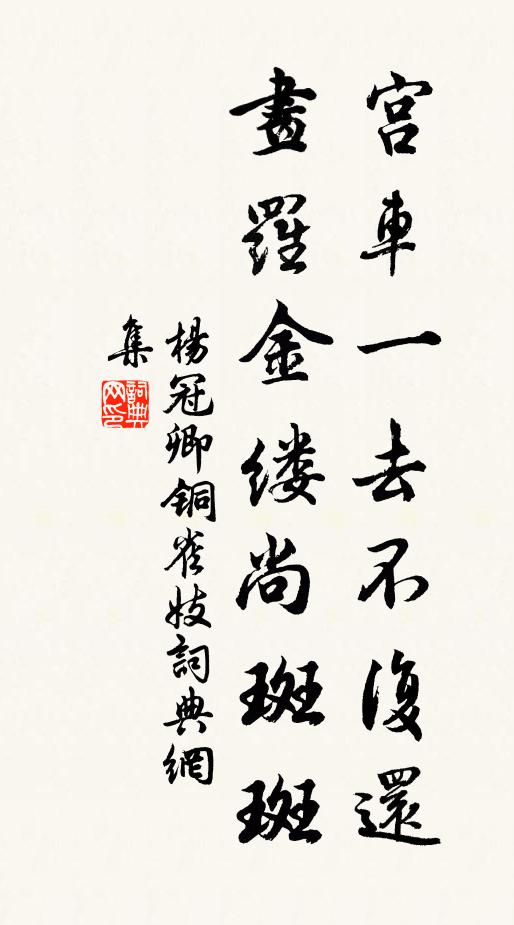 宫車一去不復還
畫羅金缕尚斑斑
楊冠卿銅雀妓詞典網
集
詞典网印